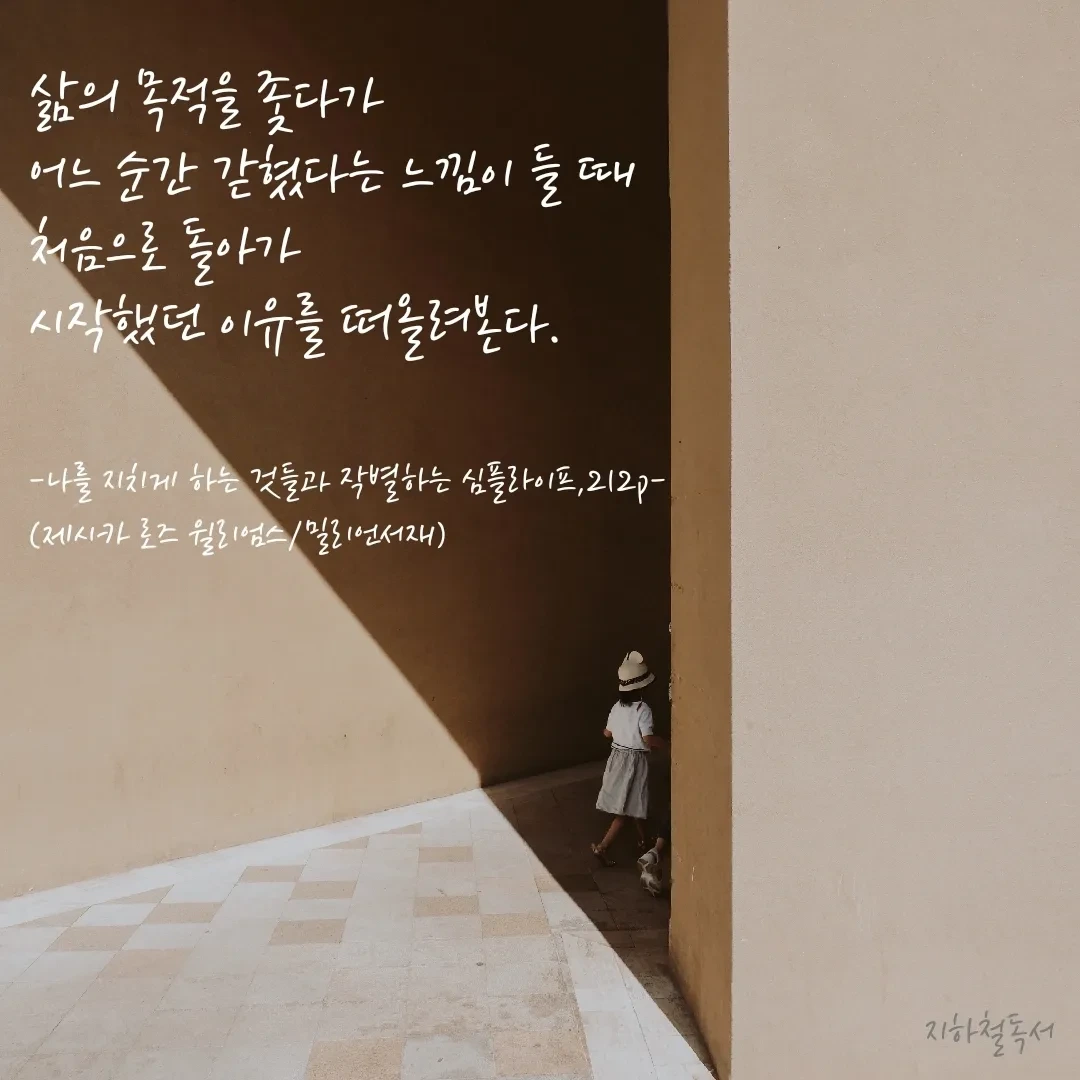 삶의 목적을 좇다가
어느 순간 갇혔다는 느낌이 들 때
처음으로 돌아가
시작했던 이유를 떠올려본다.
-나를 지치게 하는 것들과 작별하는 심플라이프,212p-
(제시카 로즈 윌리엄스/밀리언서재)
지하철독서